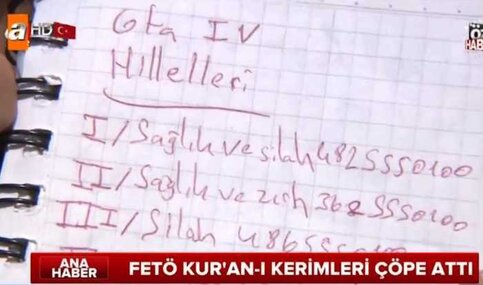 a HD
HABER
Gta IV
Hillelleri
I/Sağlık ve silah 4825550100
II/Sağlık ve zırh 3625550100
III/Silah 486555
ANA HABER
FETÖ KUR'AN-I KERİMLERİ ÇÖPE ATTI